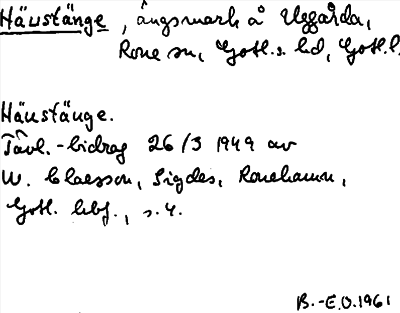 Häustänge, ängsmark å Uggårda,
Rone sn, Gotl. s. hd, Gotl. l.
Häustänge.
Tävl.-bidrag 26/3 1949 av
W. Claesson, Sigdes, Ronehamn,
Gotl. lbf., s. 4.
B.-E.O. 1961